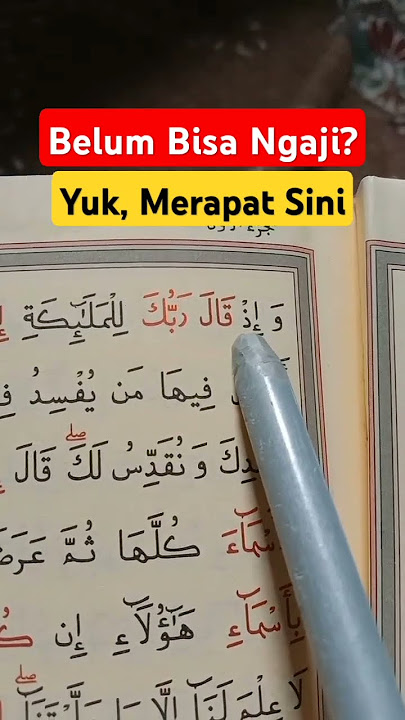 Belum Bisa Ngaji?
Yuk, Merapat Sini
وَ إِذْ قَالَ رَبُّكَ لِلْمَلَٰٓئِكَةِ
فِيهَا مَن يُفْسِدُ
وَ نُقَدِّسُ لَكَ ۖ قَالَ
كُلَّهَا ثُمَّ
بِأَسْمَآءِ هَٰٓؤُلَآءِ إِن
لَا عِلْمَ لَنَآ إِلَّا مَا عَلَّمْتَنَآ ۖ